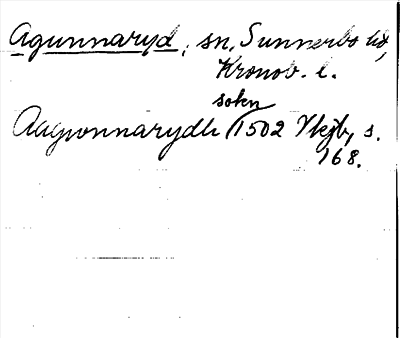 Agunnaryd, sn, Sunnerbo hd,
Kronob. l.
sokn
Augwnnarydh (1502 Vkjb, s.
168.